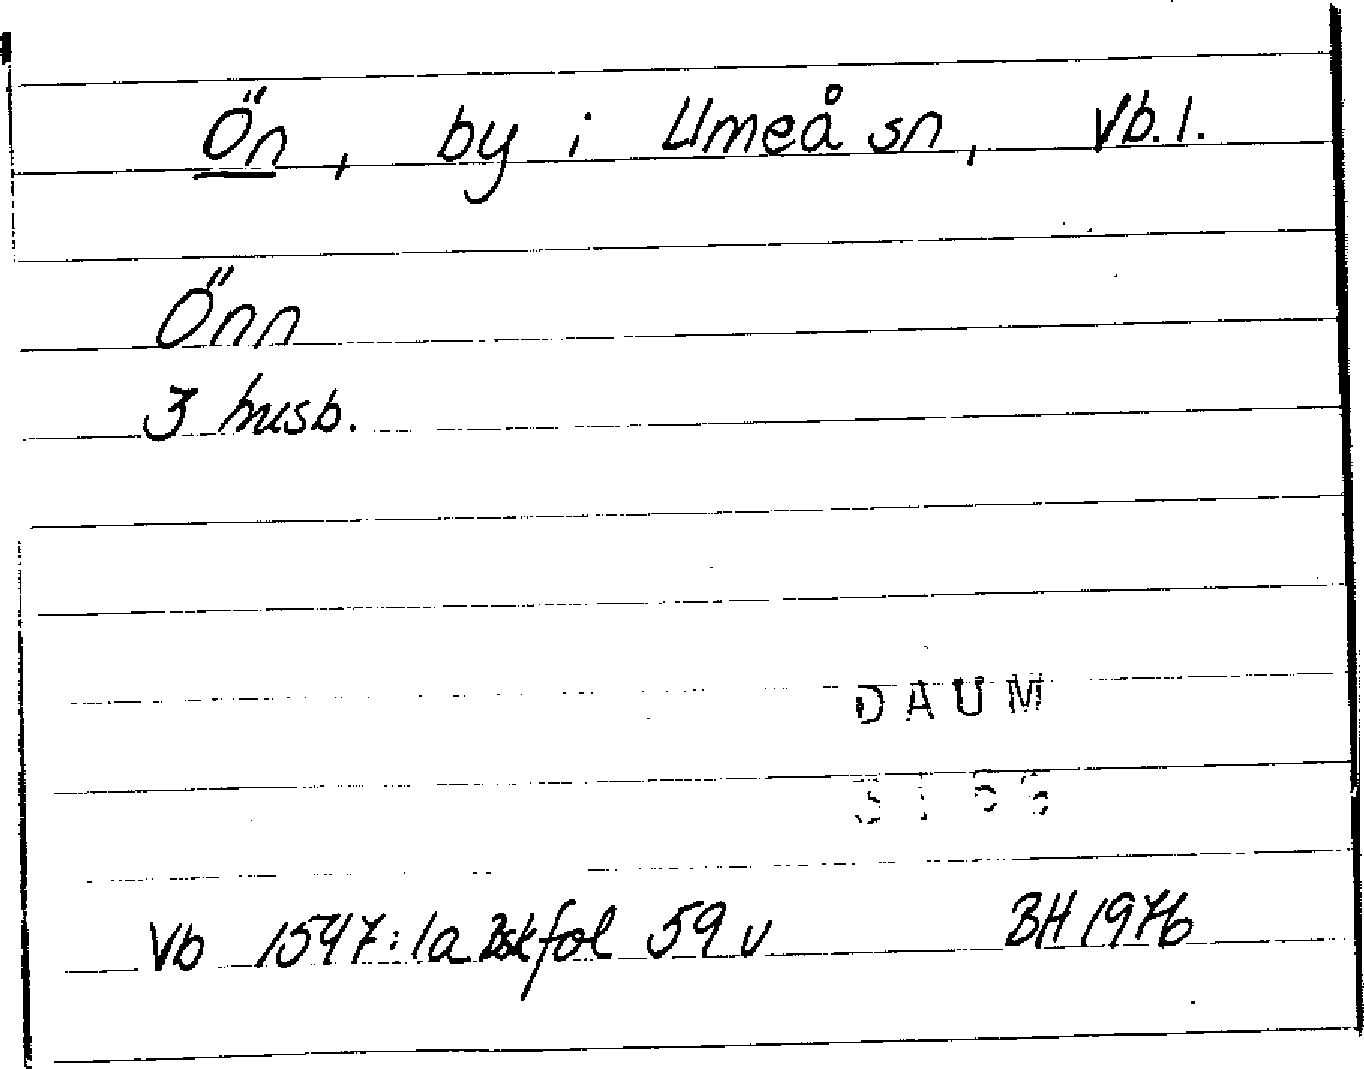 Ön, by i Umeå sn, Vb. l.
Önn
3 husb.
DAUM
Vb 1547:1a Bsk fol 59 v BH 1976